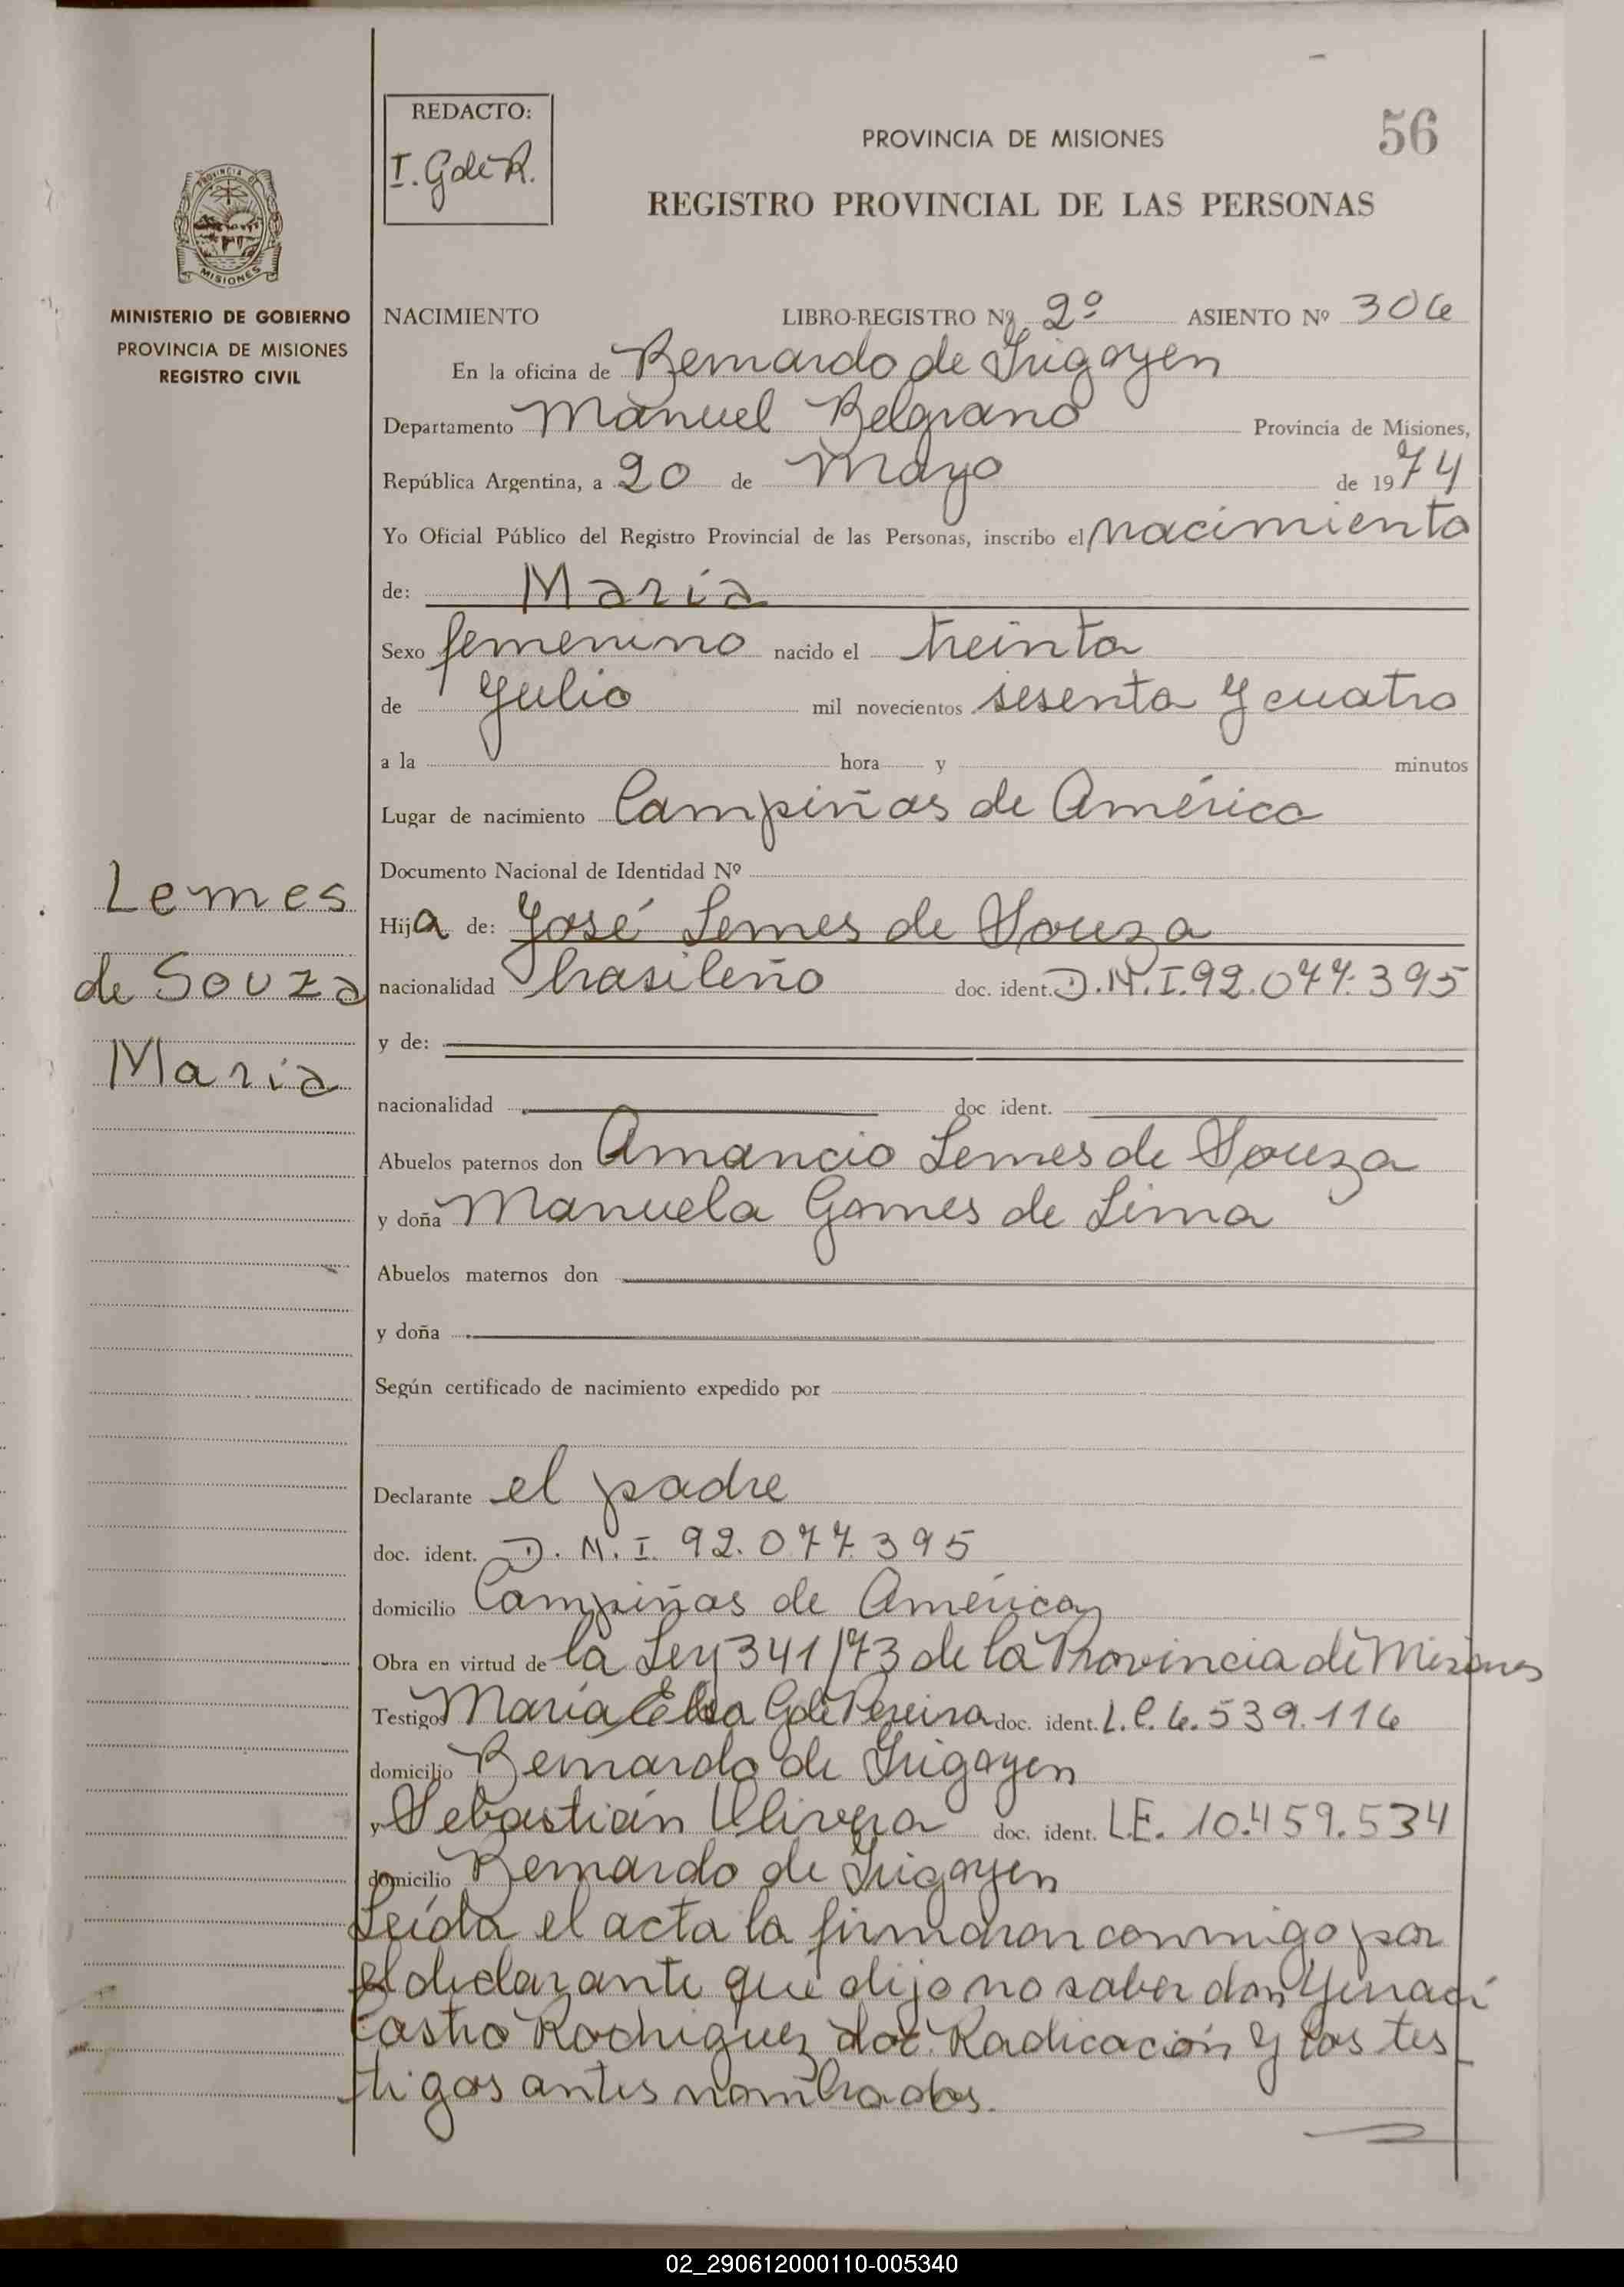 REDACTO:
I. G de R.
PROVINCIA DE MISIONES
56
REGISTRO PROVINCIAL DE LAS PERSONAS
PROVINCIA DE
MISIONES
MINISTERIO DE GOBIERNO
PROVINCIA DE MISIONES
REGISTRO CIVIL
NACIMIENTO LIBRO-REGISTRO Nº 2º ASIENTO Nº 306
En la oficina de Bernardo de Irigoyen
Departamento Manuel Belgrano Provincia de Misiones,
República Argentina, a 20 de Mayo de 1974
Yo Oficial Público del Registro Provincial de las Personas, inscribo el nacimiento
de: María
Sexo femenino nacido el treinta
de Julio mil novecientos sesenta y cuatro
a la hora y minutos
Lugar de nacimiento Campiñas de América
Documento Nacional de Identidad Nº
Lemes
de Souza
María
Hija de: José Lemes de Souza
nacionalidad brasileño doc. ident. D.N.I. 92.077.395
y de:
nacionalidad doc. ident.
Abuelos paternos don Amancio Lemes de Souza
y doña Manuela Gomes de Lima
Abuelos maternos don
y doña
Según certificado de nacimiento expedido por
Declarante el padre
doc. ident. D.N.I. 92.077.395
domicilio Campiñas de América
Obra en virtud de la Ley 341/73 de la Provincia de Misiones
Testigos María Elsa G de Pereira doc. ident. L.C. 6.539.116
domicilio Bernardo de Irigoyen
y Sebastián Olivera doc. ident. L.E. 10.459.534
domicilio Bernardo de Irigoyen
Leída el acta la firmaron conmigo por
el declarante que dijo no saber don
Castro Rodriguez doc. Radicación y los tes
tigos antes nombrados.
02_290612000110-005340